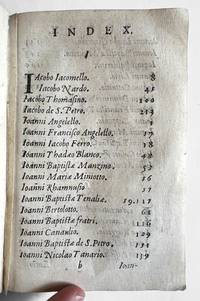 INDEX.
I
IAcobo Iacomello. 8
Iacobo Nardo. 41
Iacobo Thomasino. 100
Iacobo de S. Petro. 211
Ioanni Angelello.
Ioanni Francisco Angelello. 17
Ioanni Iacobo Ferro. 18
Ioanni Thadæo Blanco. 42
Ioanni Baptistæ Manzino. 52
Ioanni Mariæ Miniotto. 56
Ioanni Rhamnusio. 57
Ioanni Baptistæ Tenaliæ. 59.117
Ioanni Bertolotto. 68
Ioanni Baptistæ fratri.
Ioanni Canaulio. 129
Ioanni Baptistæ de S. Petro. 131
Ioanni Nicolao Tanario. 139
b Ioan-